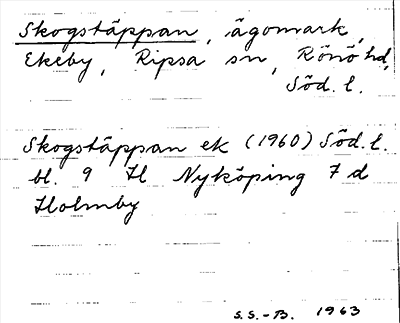 Skogstäppan, ägomark,
Ekeby, Ripsa sn, Rönö hd,
Söd. l.
Skogstäppan ek (1960) Söd. l.
bl. 9 H Nyköping 7 d
Holmby
S.S.-B. 1963